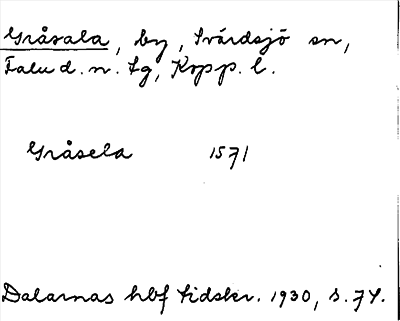 Gråsala, by, Svärdsjö sn,
Falu d. n. tg, Kopp. l.
Gråsela 1571
Dalarnas hbf tidskr. 1930, s. 74.